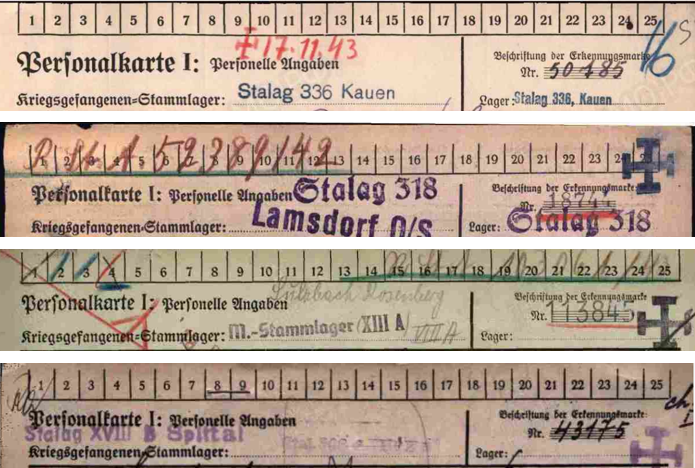 1 2 3 4 5 6 7 8 9 10 11 12 13 14 15 16 17 18 19 20 21 22 23 24 25
✝ 17.11.43
16
Personalkarte I: Personelle Angaben
Beschriftung der Erkennungsmarke
Nr. 50485
Kriegsgefangenen-Stammlager: Stalag 336 Kauen
Lager: Stalag 336, Kauen
1 2 3 4 5 6 7 8 9 10 11 12 13 14 15 16 17 18 19 20 21 22 23 24
Personalkarte I: Personelle Angaben Stalag 318
Beschriftung der Erkennungsmarke
Nr.
Kriegsgefangenen-Stammlager: Lamsdorf O/S
Lager: Stalag 318
1 2 3 4 5 6 7 8 9 10 11 12 13 14 15 16 17 18 19 20 21 22 23 24 25
Sulzbach Rosenberg
Personalkarte I: Personelle Angaben
Beschriftung der Erkennungsmarke
Nr. 113845
Kriegsgefangenen-Stammlager: M.-Stammlager (XIII A) VIII A
Lager:
1 2 3 4 5 6 7 8 9 10 11 12 13 14 15 16 17 18 19 20 21 22 23 24 25
Personalkarte I: Personelle Angaben
Beschriftung der Erkennungsmarke
Stalag XVIII B Spittal
Nr. 43175
Kriegsgefangenen-Stammlager:
Lager: